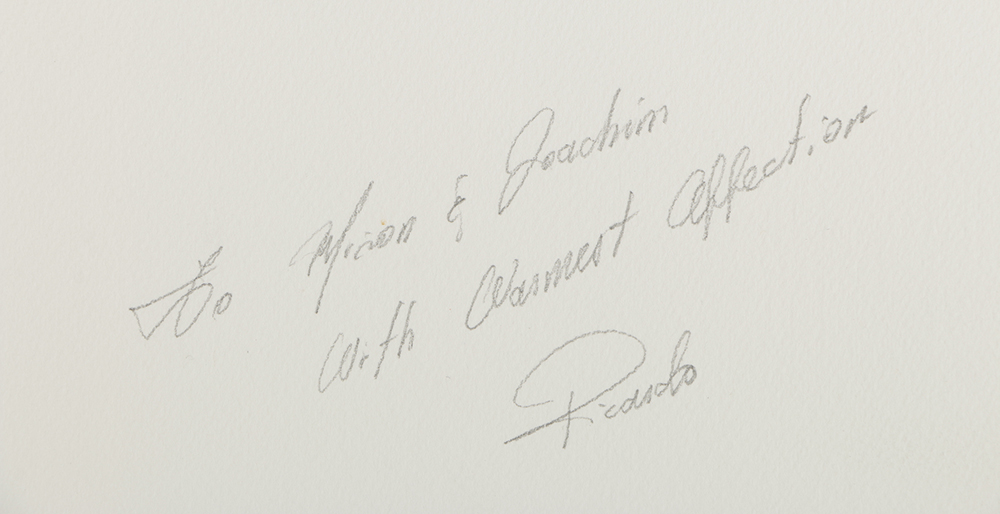 To Mirion & Joachim
With Warmest Affection
Ricardo